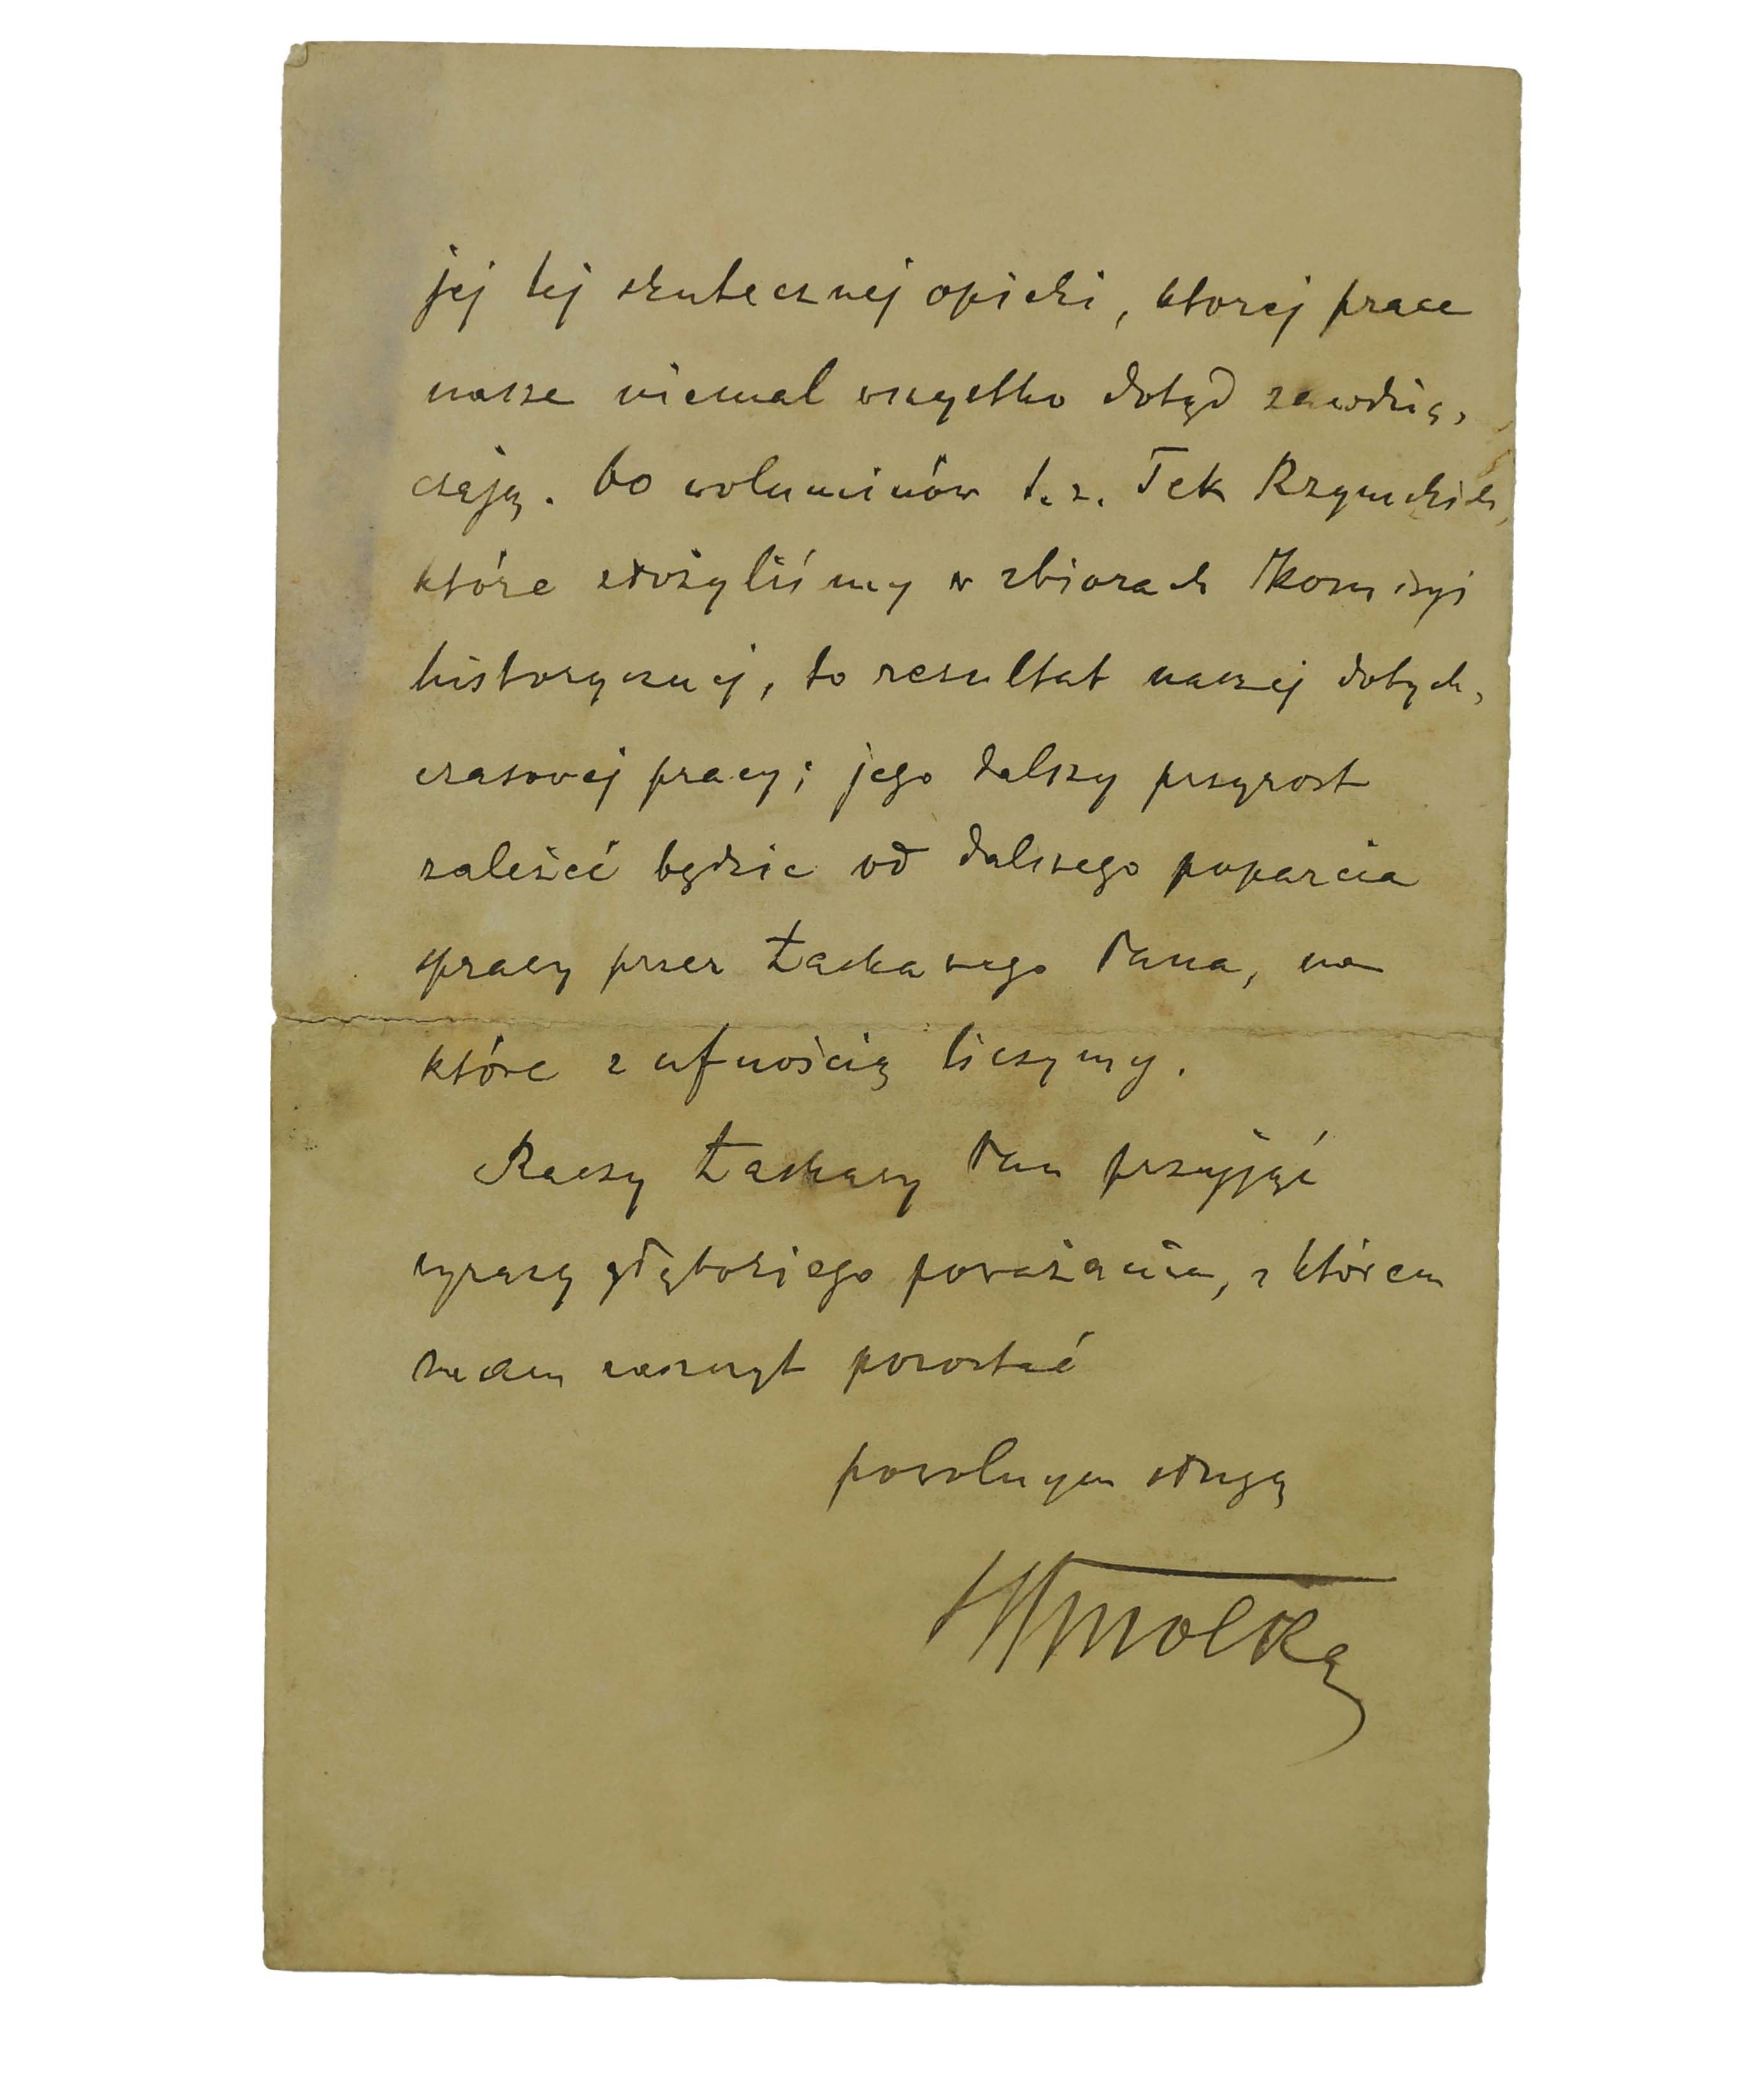 jej tej skutecznej opieki, ktorej prace
nasze niemal wszystko dotąd zawdzię,
czają. 60 woluminów t. z. Tek Rzymskich,
które złożyliśmy w zbiorach Komisyi
historycznej, to rezultat naszej dotych,
czasowej pracy; jego dalszy przyrost
zależeć będzie od dalszego poparcia
pracy przez Łaskawego Pana, na
które z ufnością liczymy.
Raczy Łaskawy Pan przyjąć
wyrazy głębokiego poważania, z którem
mam zaszczyt pozostać
powolnym sługą
SSmolka